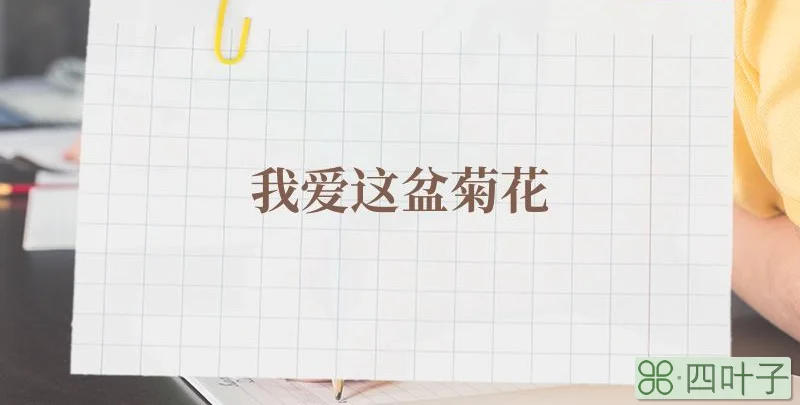 我爱这盆菊花
四叶子